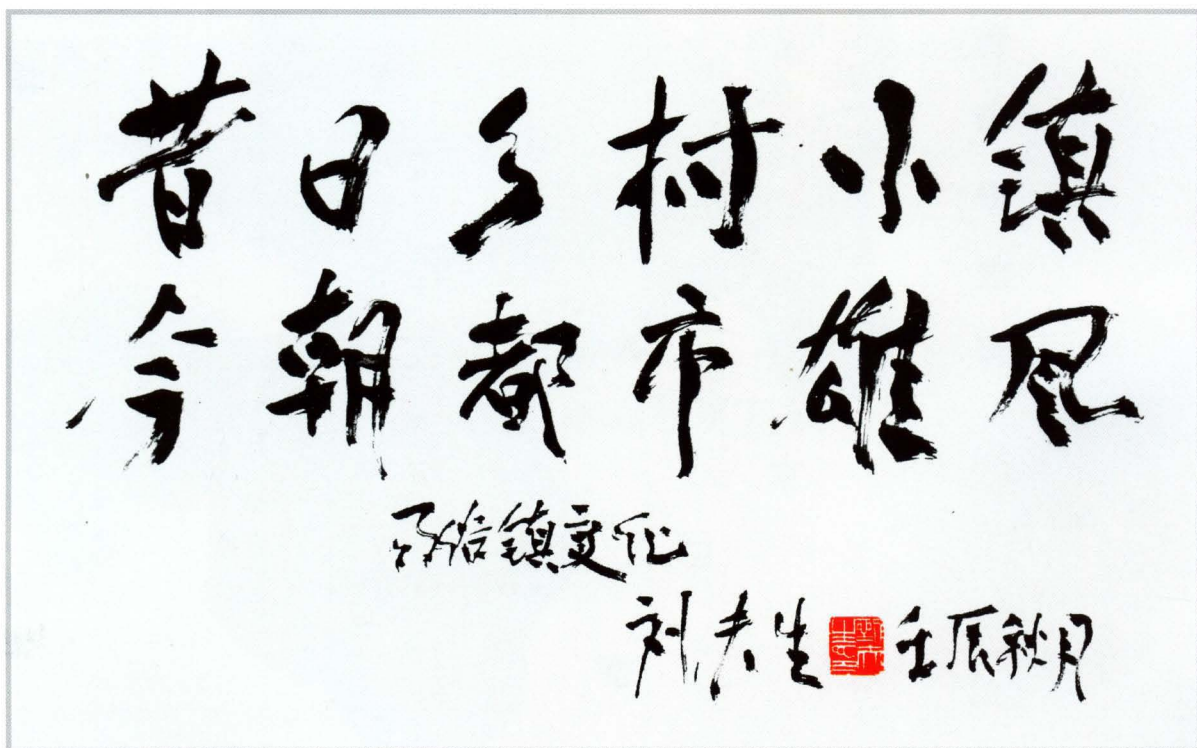 昔日乡村小镇
今朝都市雄风
镇文化
刘夫生 壬辰秋月